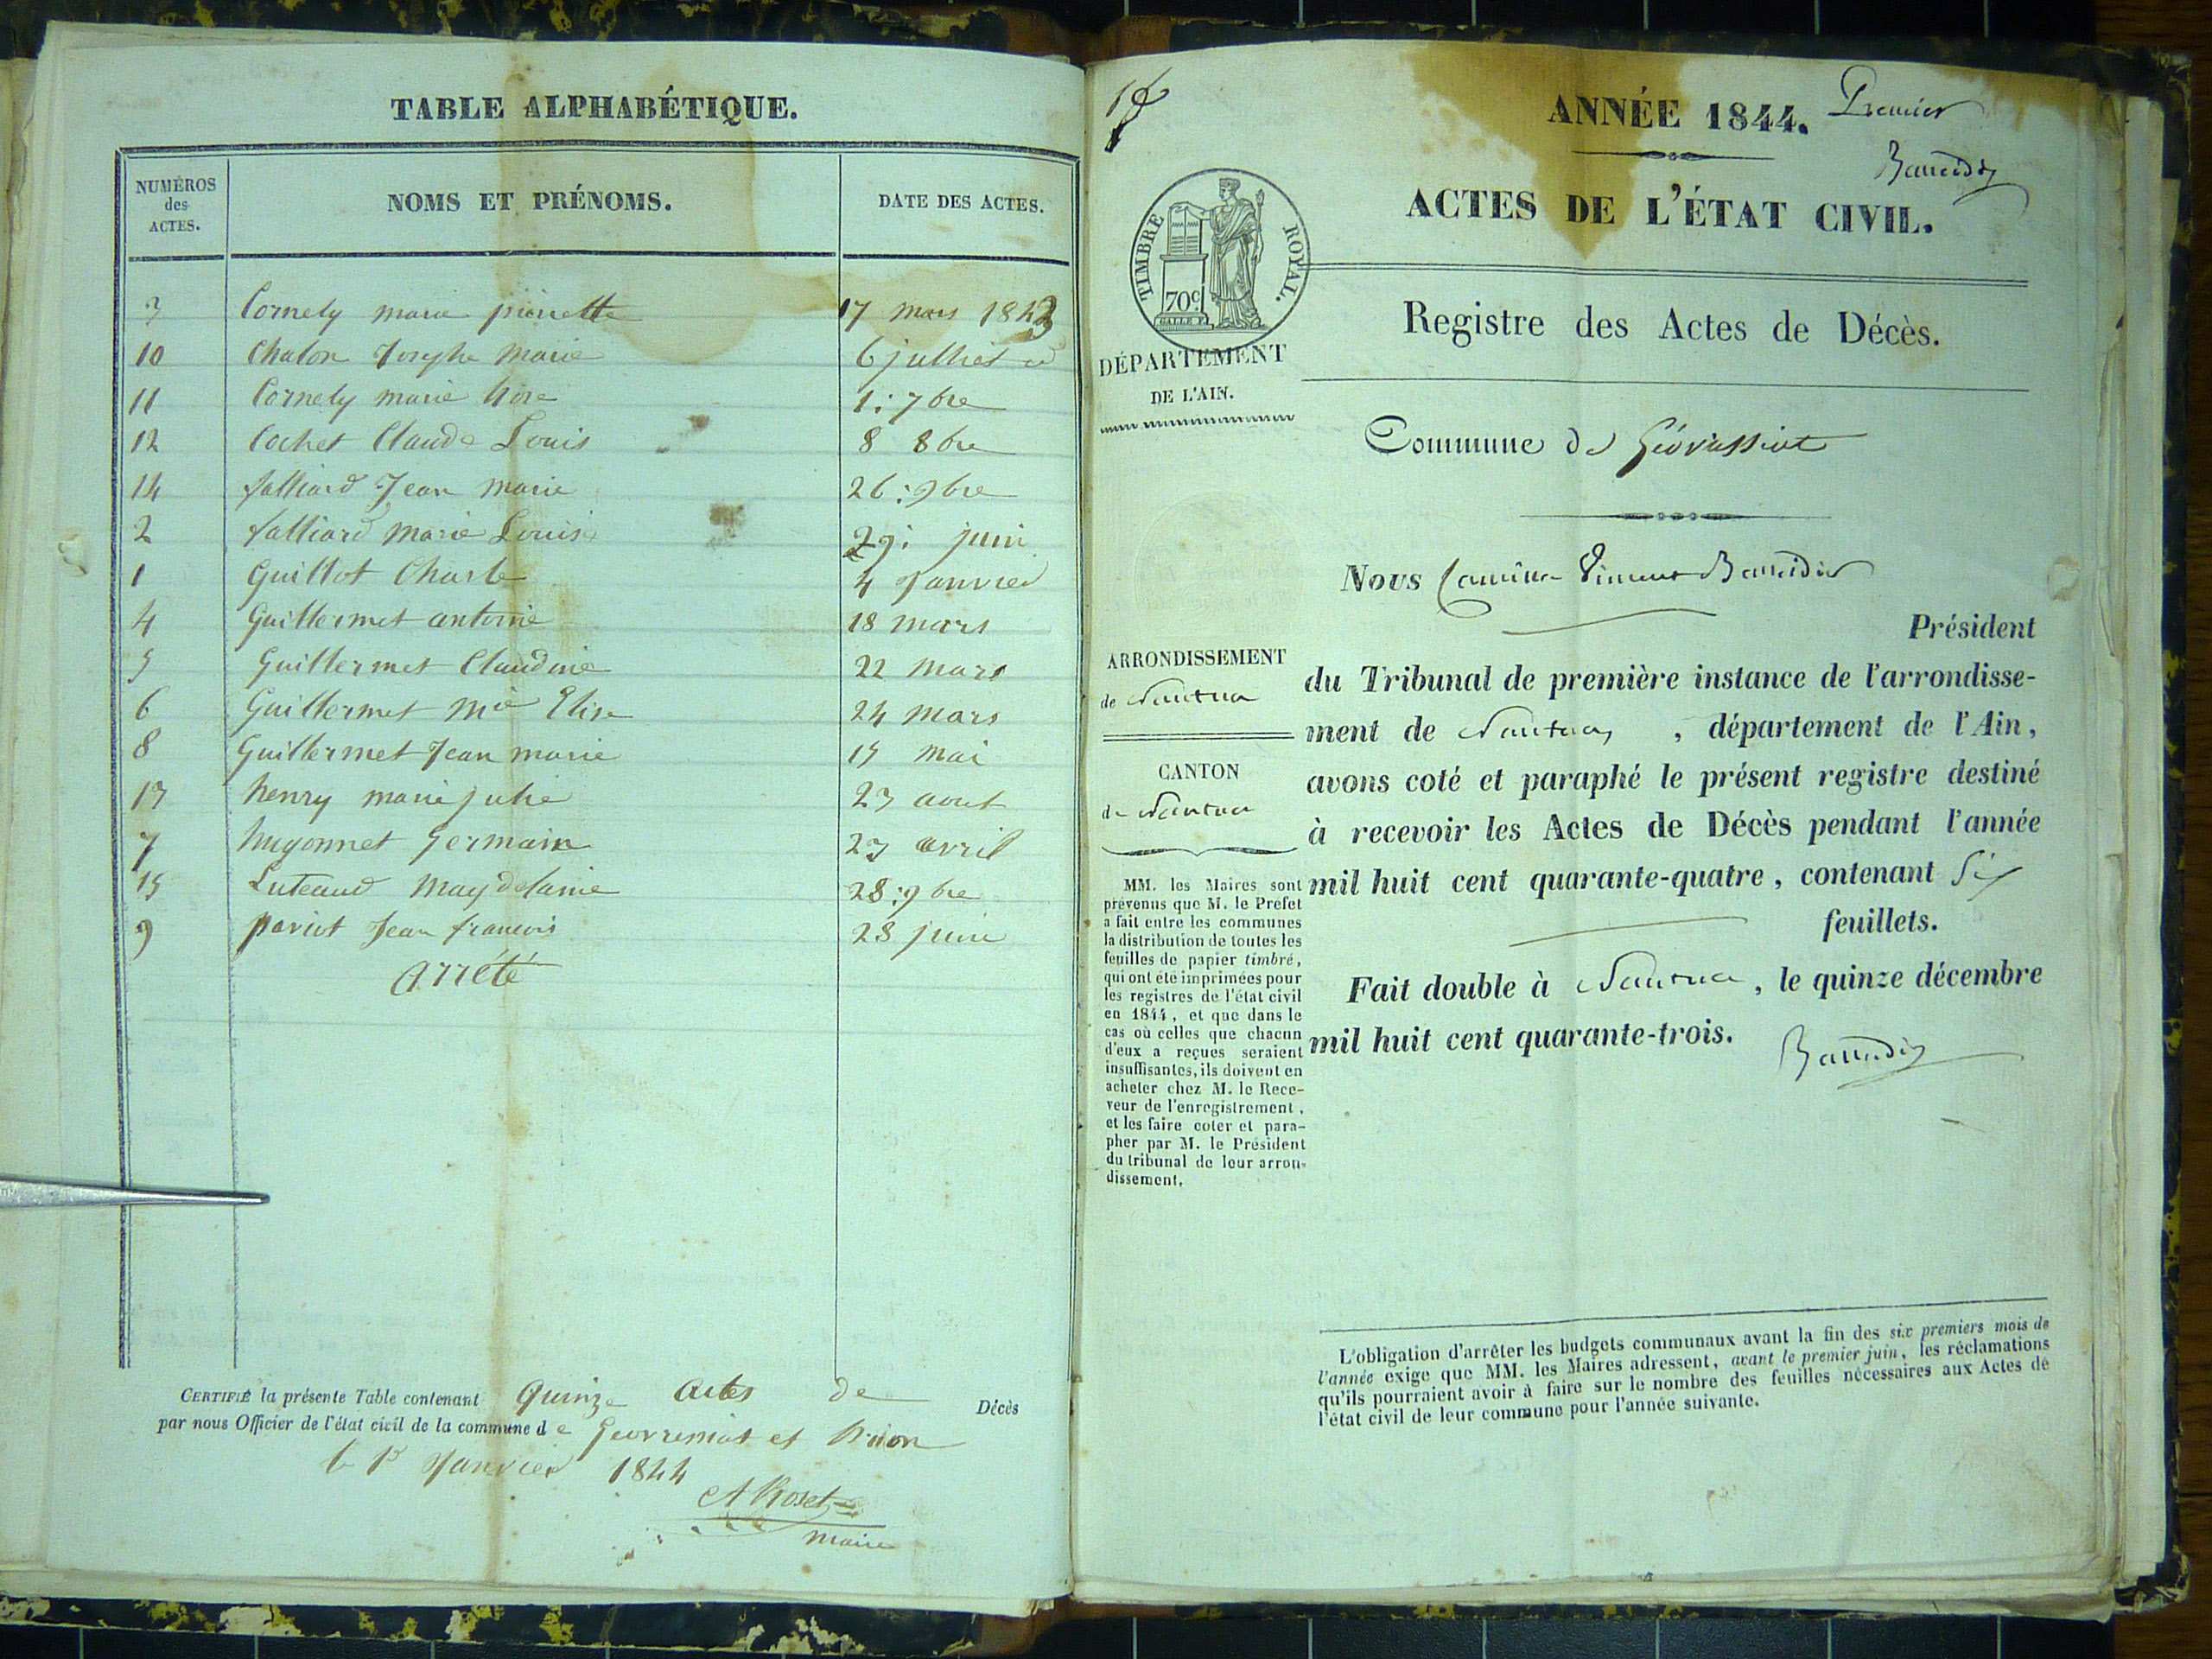 TABLE ALPHABÉTIQUE.
NUMÉROS des ACTES.
NOMS ET PRÉNOMS.
DATE DES ACTES.
3 Cornely marie pierrette 17 mars 1843
10 Chaton Josephe Marie 6 julliet
11 Cornely marie 1: 7bre
12 Cochet Claude Louis 8 8bre
14 falliard Jean marie 26: 9bre
2 falliard Marie Louise 29: juin
1 Guillot Charle 4 Janvier
4 Guillermet antoine 18 mars
5 Guillermet Claudine 22 mars
6 Guillermet Mie Elise 24 mars
8 Guillermet Jean marie 15 mai
13 henry marie julie 23 aout
7 hugonnet Germain 23 avril
15 Luteaud Magdelaine 28: 9bre
9 pariot Jean francois 28 juin
Arrêté
CERTIFIÉ la présente Table contenant Quinze actes de Décès
par nous Officier de l'état civil de la commune de Geovreissiat et
le 1er Janvier 1844
maire
ANNÉE 1844.
Premier
TIMBRE ROYAL.
70c
ACTES DE L'ÉTAT CIVIL.
Registre des Actes de Décès.
DÉPARTEMENT
DE L'AIN.
Commune de
Nous
Président
ARRONDISSEMENT
de Nantua
CANTON
de Nantua
du Tribunal de première instance de l'arrondisse-
ment de Nantua, département de l'Ain,
avons coté et paraphé le présent registre destiné
à recevoir les Actes de Décès pendant l'année
mil huit cent quarante-quatre, contenant Six
feuillets.
Fait double à Nantua, le quinze décembre
mil huit cent quarante-trois.
MM. les Maires sont
prévenus que M. le Préfet
a fait entre les communes
la distribution de toutes les
feuilles de papier timbré,
qui ont été imprimées pour
les registres de l'état civil
en 1844, et que dans le
cas où celles que chacun
d'eux a reçues seraient
insuffisantes, ils doivent en
acheter chez M. le Rece-
veur de l'enregistrement,
et les faire coter et para-
pher par M. le Président
du tribunal de leur arron-
dissement.
L'obligation d'arrêter les budgets communaux avant la fin des six premiers mois de
l'année exige que MM. les Maires adressent, avant le premier juin, les réclamations
qu'ils pourraient avoir à faire sur le nombre des feuilles nécessaires aux Actes de
l'état civil de leur commune pour l'année suivante.